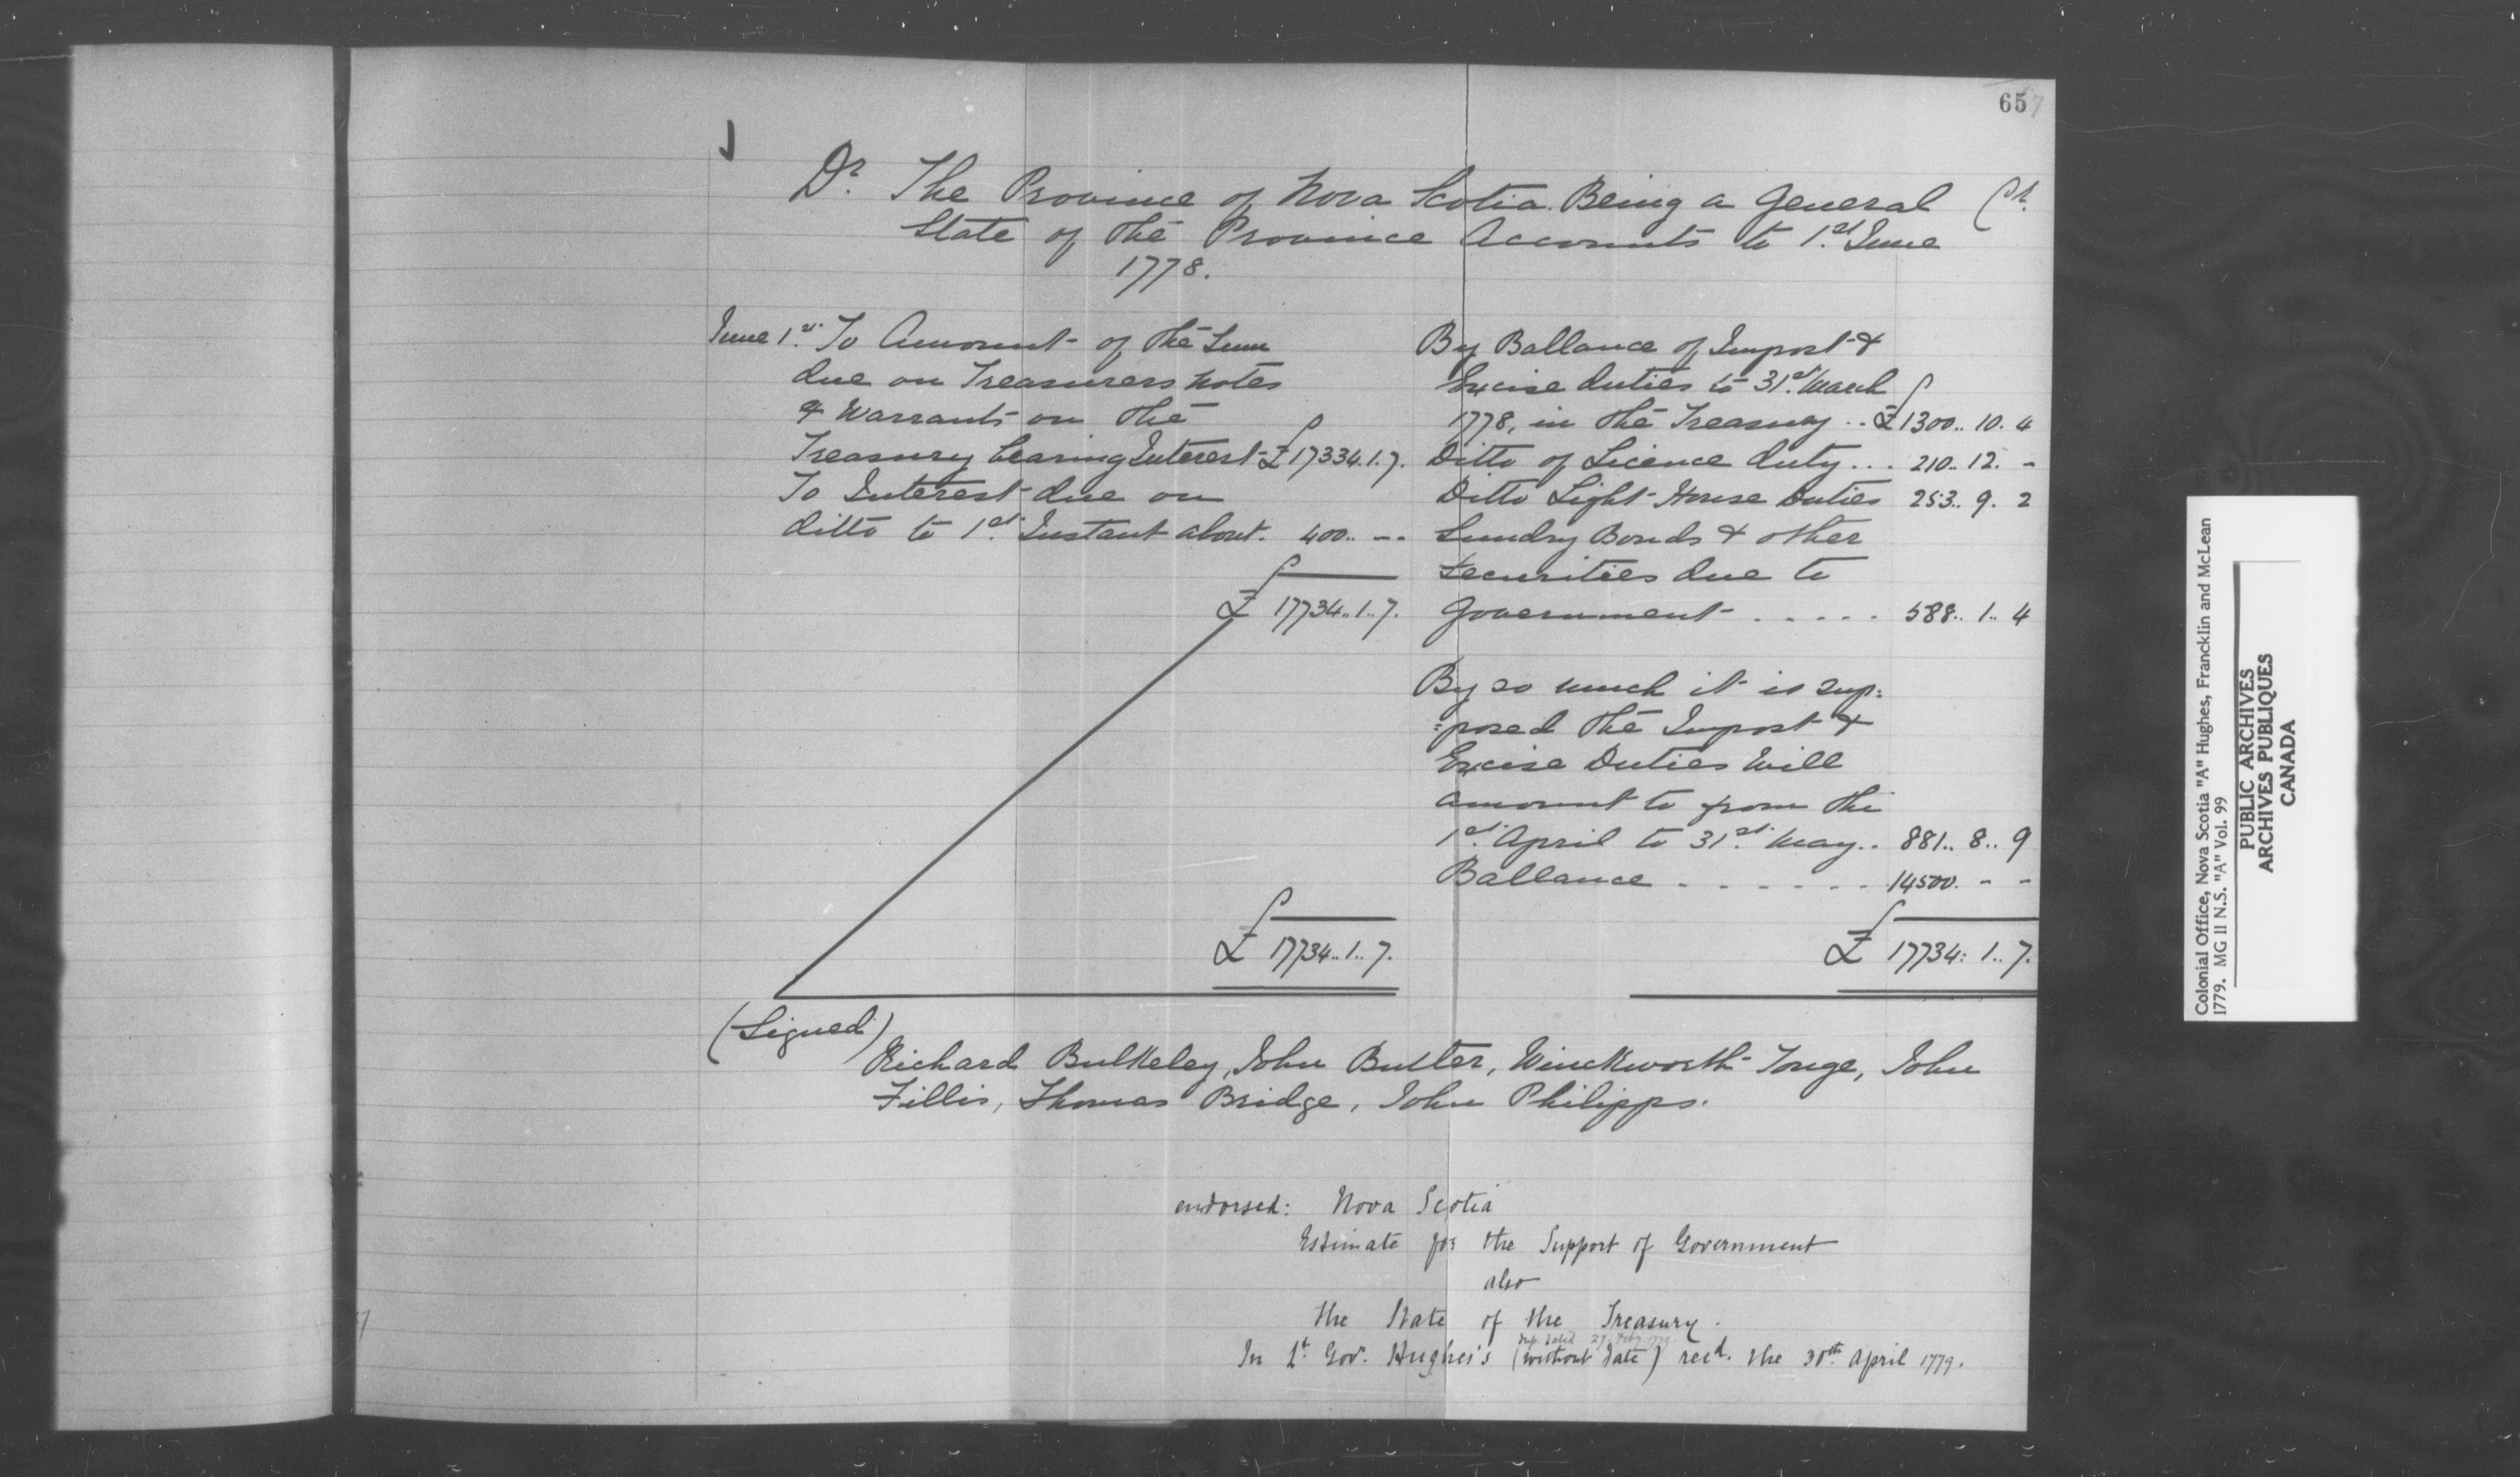 657
Dr. The Province of Nova Scotia. Being a General Cr.
State of the Province Accounts to 1st June
1778.
June 1st. To Amount of the Sum
due on Treasurers Notes
& Warrants on the
Treasury bearing Interest £17334.1.7.
To Interest due on
ditto to 1st. Instant about. 400.. --
£ 17734..1..7.
£ 17734..1..7.
By Ballance of Impost &
Excise duties to 31st. March
1778, in the Treasury .. £1300.. 10. 4
Ditto of Licence duty... 210.. 12. -
Ditto Light House Duties 253.. 9. 2
Sundry Bonds & other
securities due to
Government - . . . . . 588.. 1.. 4
By so much it is sup:
:posed the Impost &
Excise Duties Will
amount to from the
1st. April to 31st. May.. 881.. 8.. 9
Ballance - - - - - - - 14500. - -
£ 17734: 1.. 7.
(Signed)
Richard Bulkeley, John Butler, Winckworth Tonge, John
Fillis, Thomas Bridge, John Philipps.
endorsed: Nova Scotia
Estimate for the Support of Government
also
the State of the Treasury.
dup. dated 27. Feby 1779
In Lt. Gov. Hughes's (without date) recd. the 30th. April 1779.
Colonial Office, Nova Scotia "A" Hughes, Francklin and McLean
1779. MG 11 N.S. "A" Vol. 99
PUBLIC ARCHIVES
ARCHIVES PUBLIQUES
CANADA